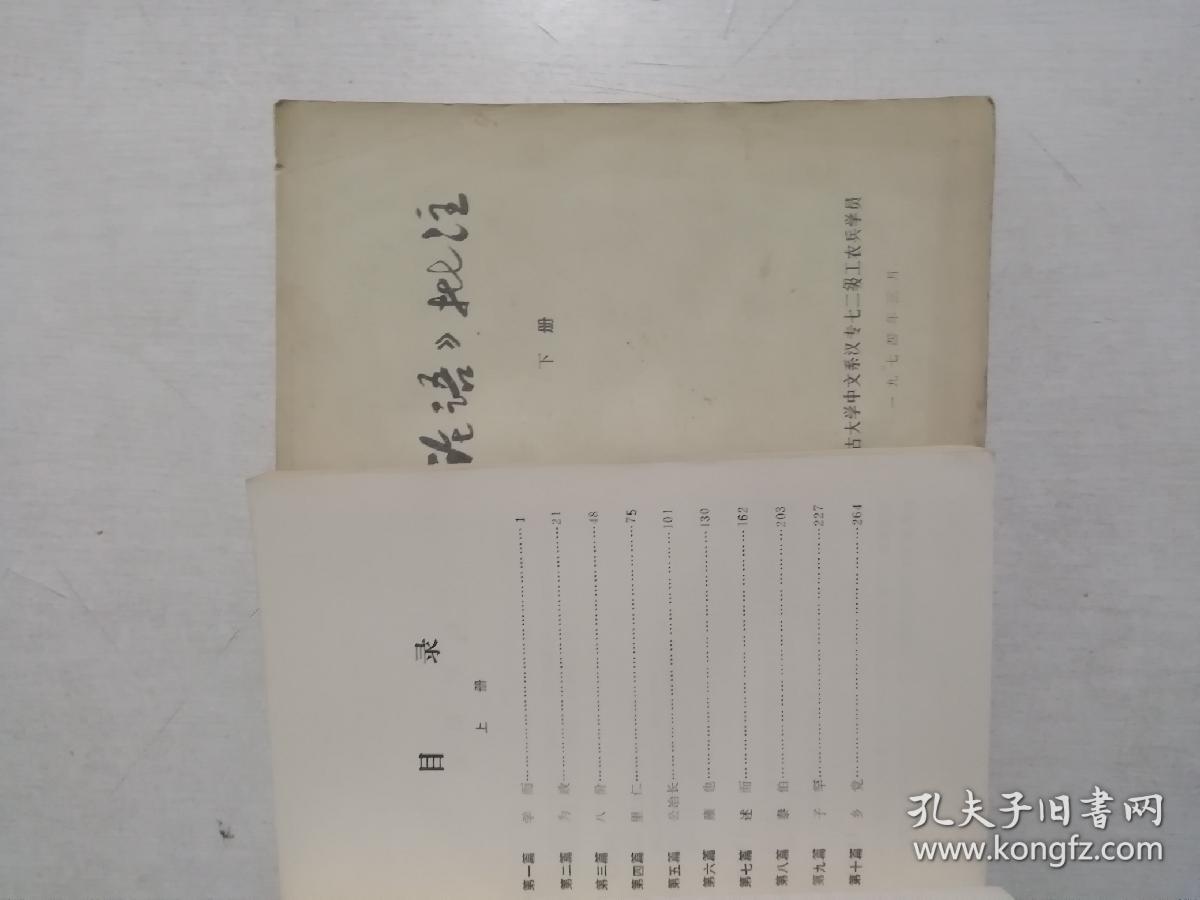 论语》批注
下册
古大学中文系汉专七二级工农兵学员
一九七四年三月
目录
上册
第一篇 学而……1
第二篇 为政……21
第三篇 八佾……48
第四篇 里仁……75
第五篇 公冶长……101
第六篇 雍也……130
第七篇 述而……162
第八篇 泰伯……203
第九篇 子罕……227
第十篇 乡党……264
孔夫子旧书网
www.kongfz.com